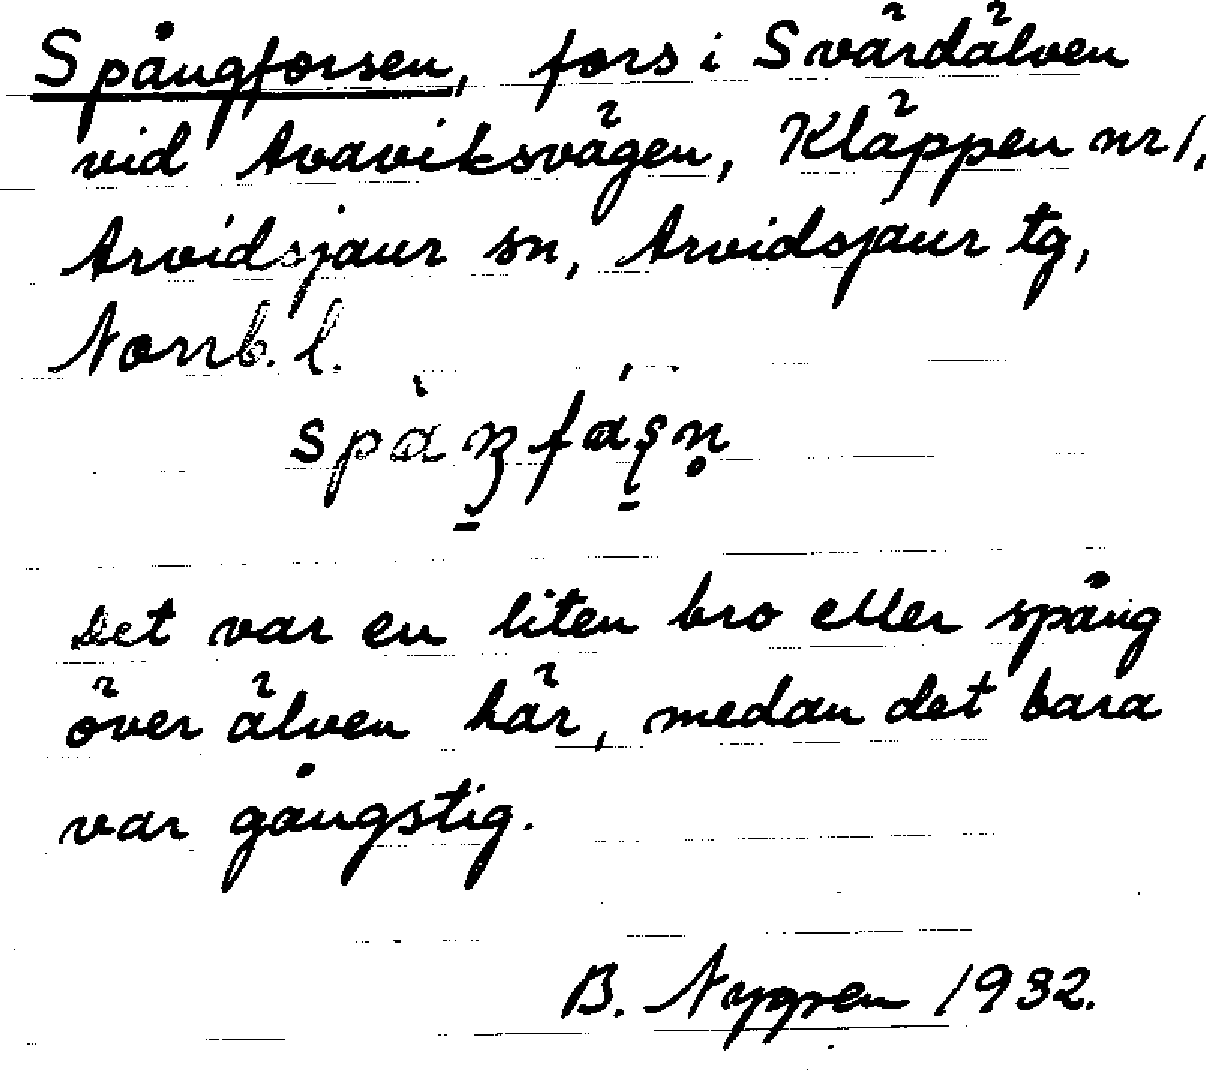 Spångforsen, fors i Svärdälven
vid Avaviksvägen, Kläppen nr 1,
Arvidsjaur sn, Arvidsjaur tg,
Norrb. l.
Det var en liten bro eller spång
över älven här, medan det bara
var gångstig.
B. Nygren 1932.